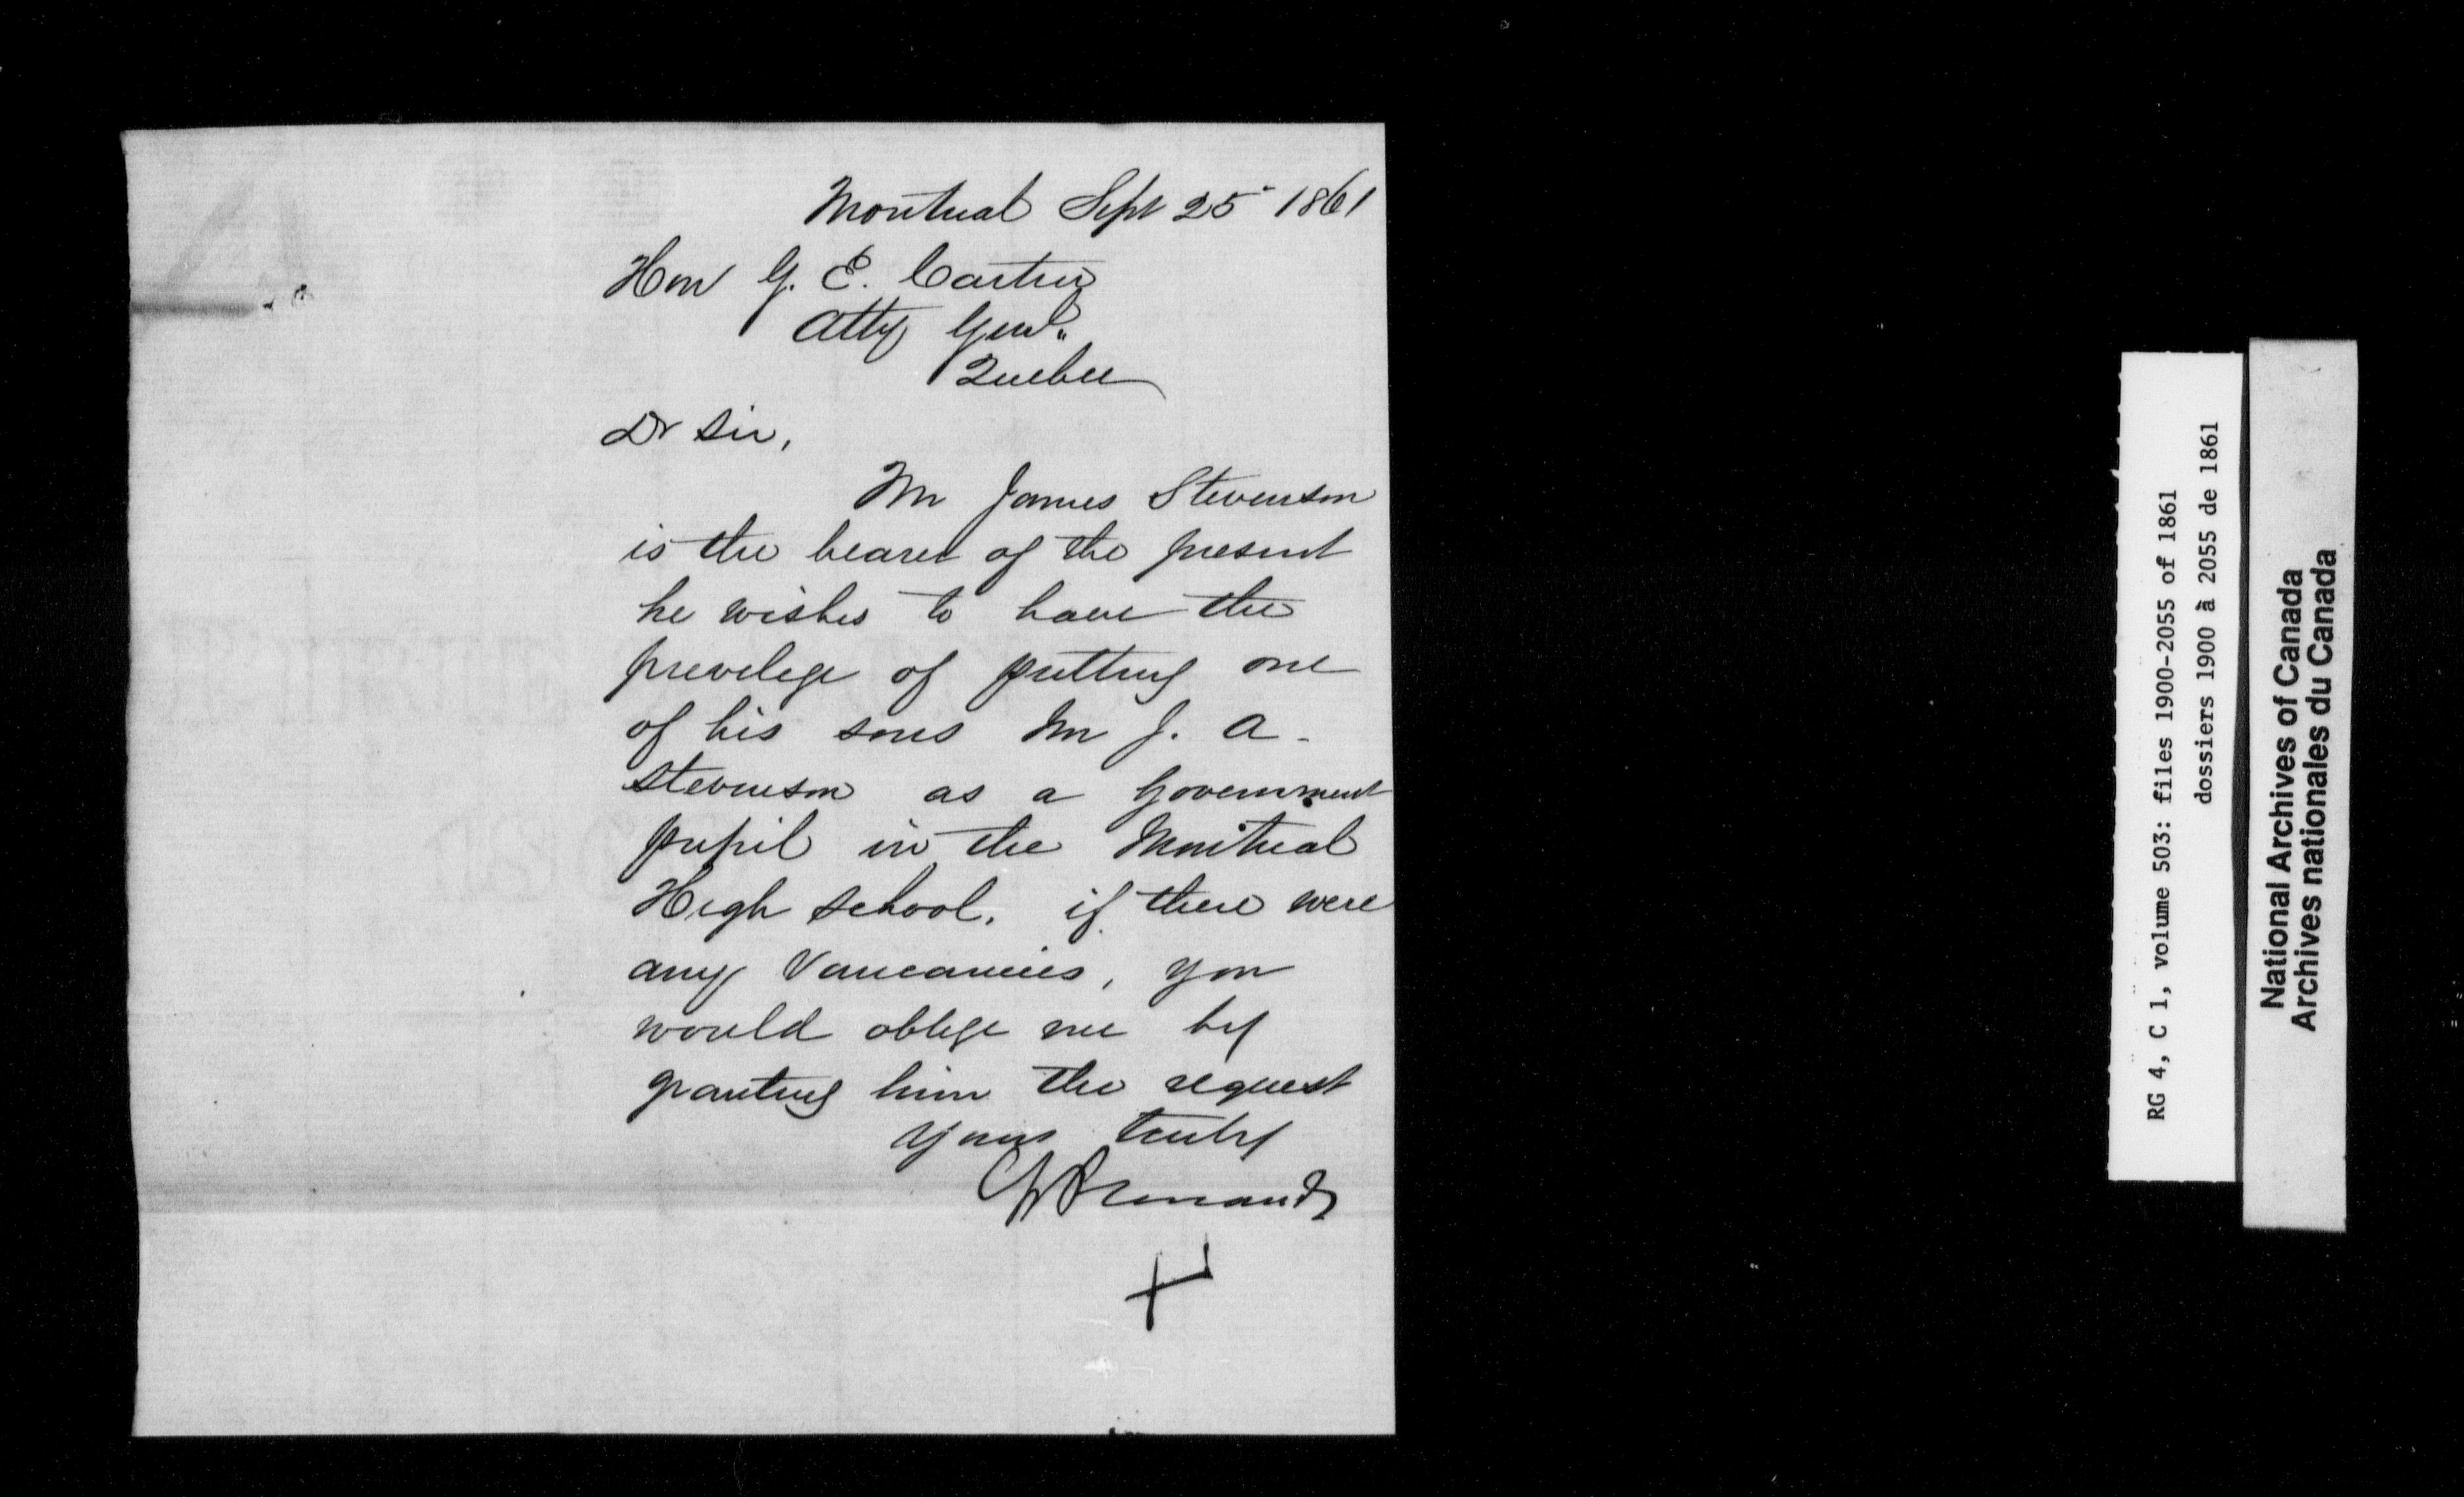 Montreal Sept 25 1861
Hon G. E. Cartier
Atty Genl.
Quebec
Dr Sir,
Mr James Stevenson
is the bearer of the present
he wishes to have the
prevelege of putting one
of his sons Mr J. A.
Stevenson as a Government
pupil in the Montreal
High School. if there were
any Vancancies, you
would oblege me by
granting him the request
Yours truly
RG 4, C 1, volume 503: files 1900-2055 of 1861
dossiers 1900 à 2055 de 1861
National Archives of Canada
Archives nationales du Canada